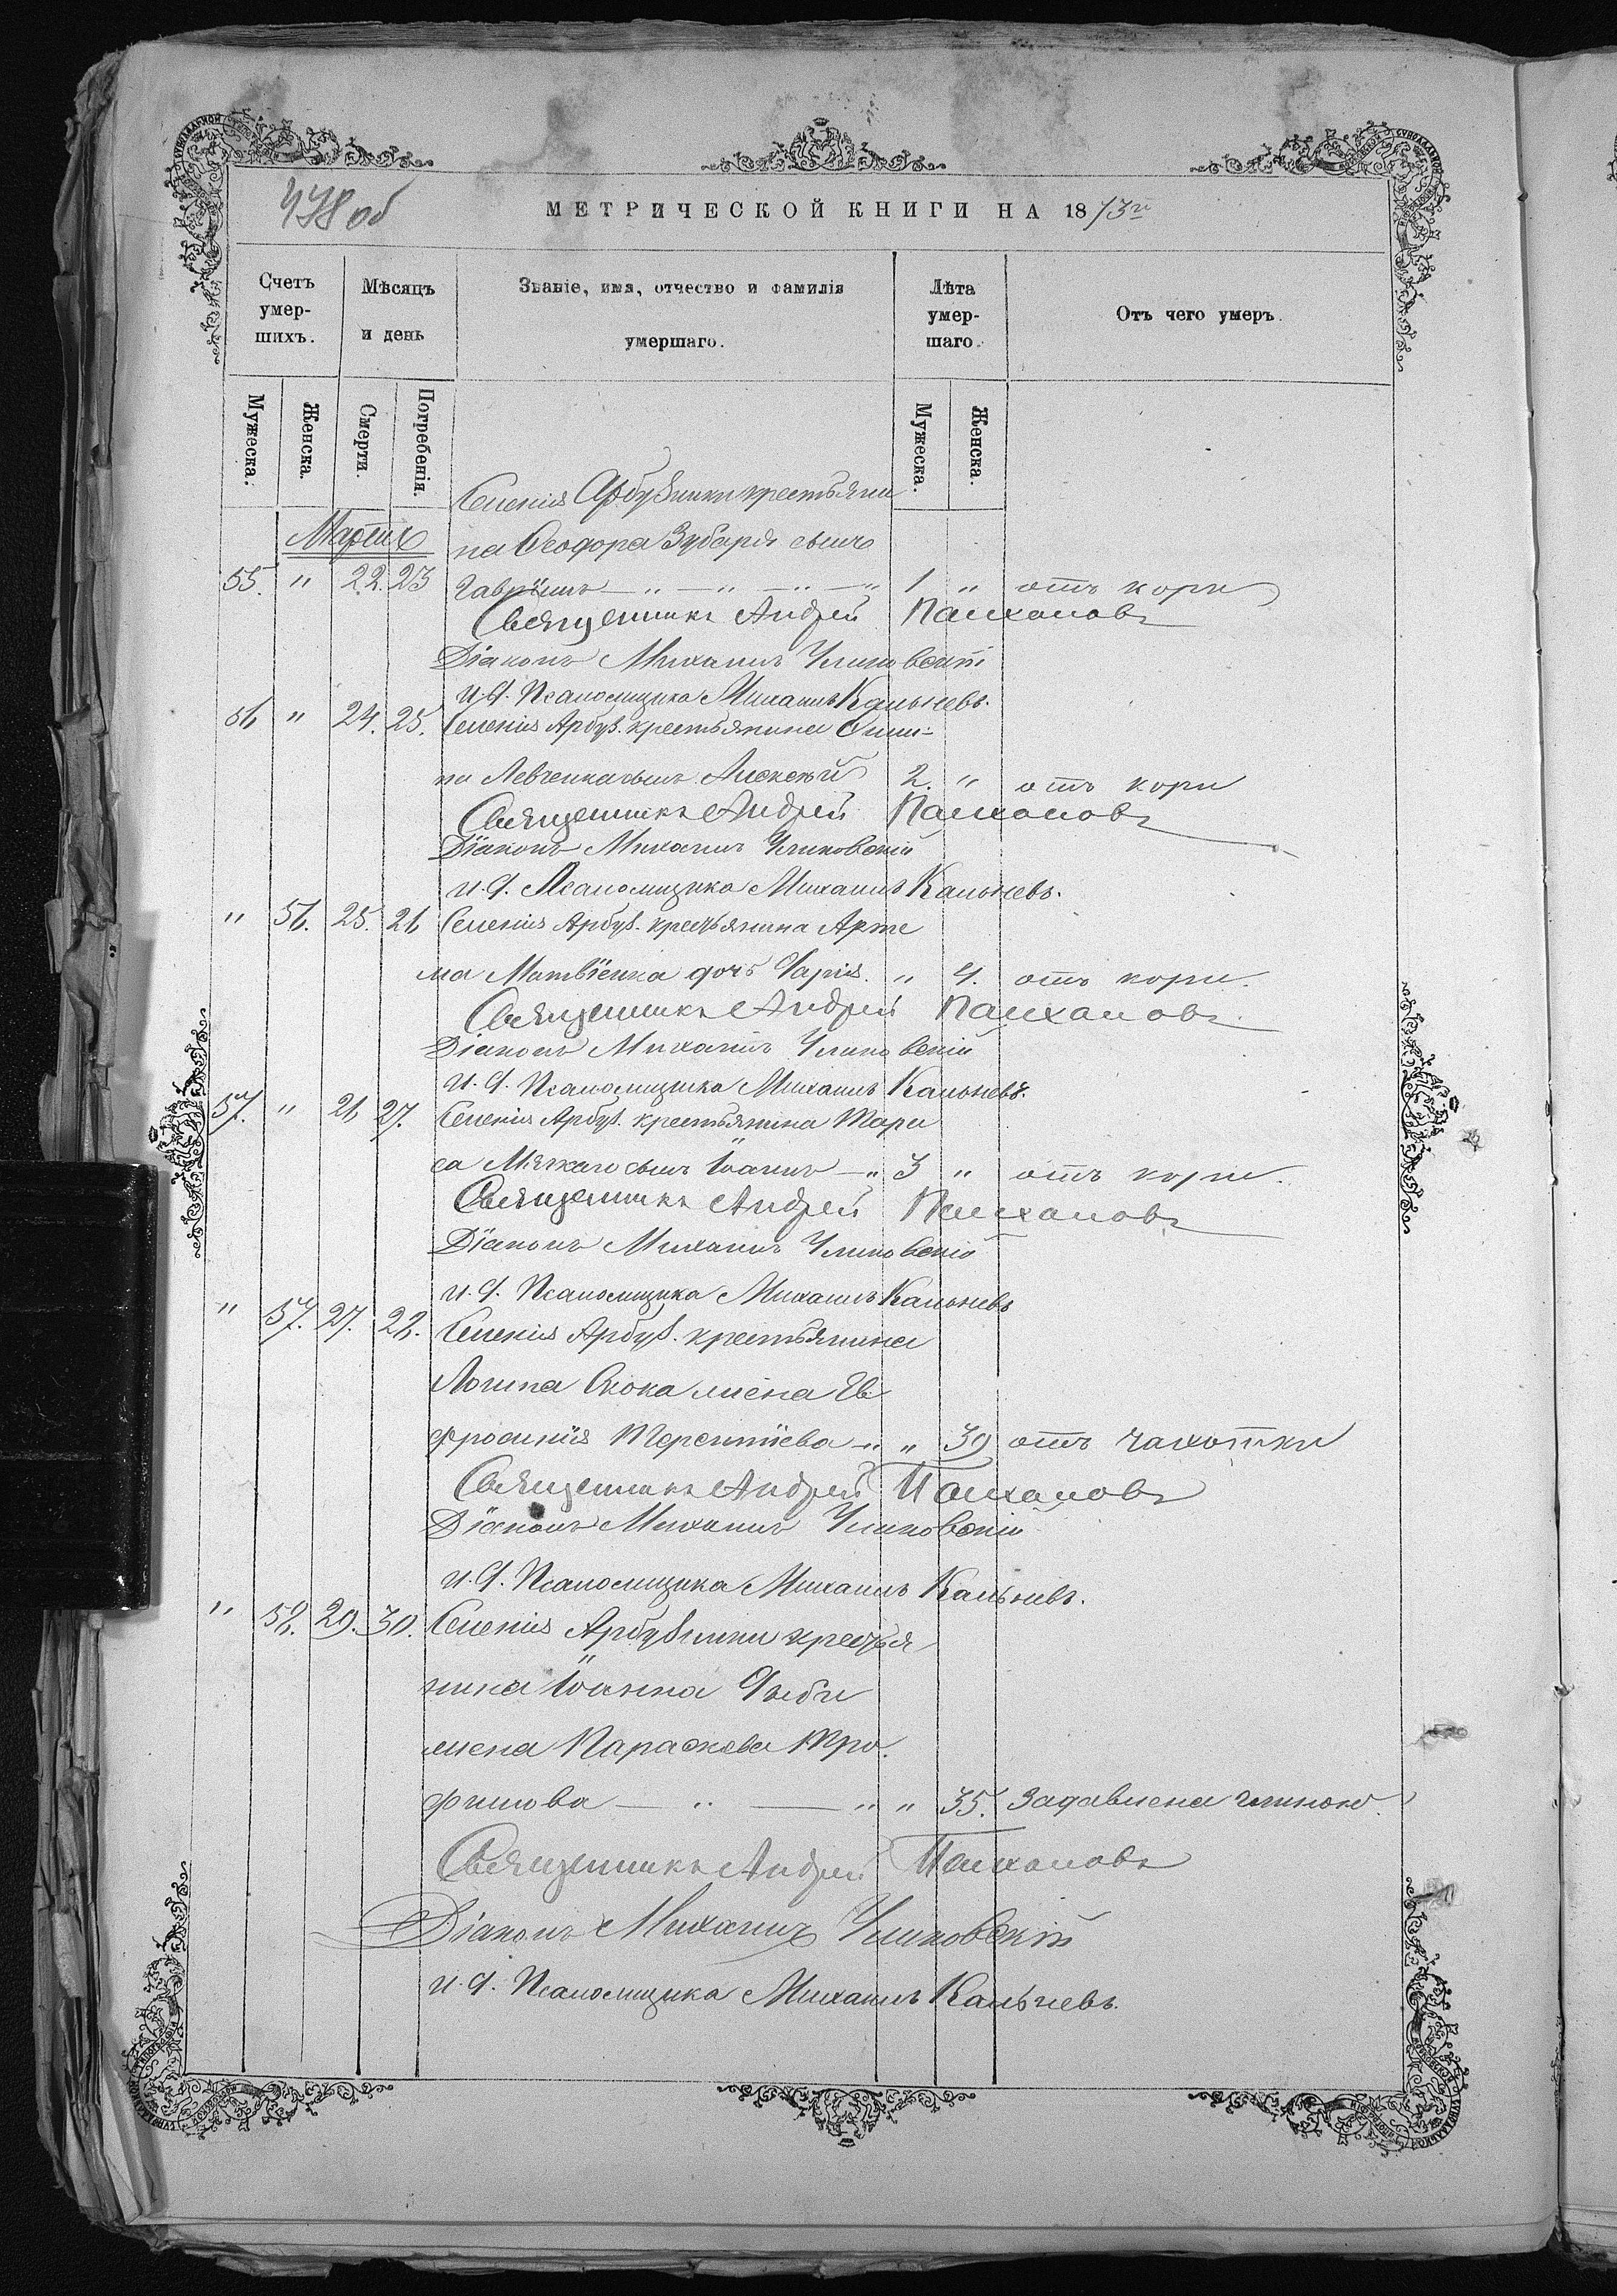 478 об
МЕТРИЧЕСКОЙ КНИГИ НА 1873 г.
Счетъ умер-шихъ.
Мѣсяцъ и день
Званіе, имя, отчество и фамилія умершаго.
Лѣта умер-шаго.
Отъ чего умеръ.
Мужеска.
Женска.
Смерти.
Погребенія.
Мужеска.
Женска.
Селенія Арбузинки крестьяни
Мартъ
на Ѳеодора Зубаря сынъ
55. " 22. 23 Гавріилъ 1 " отъ кори
Священникъ Андрей Палхановъ
Діаконъ Михаилъ
и. д. Псаломщика Михаилъ Кальневъ.
56 " 24. 25. Селенія Арбуз. крестьянина Сими-
на Левченка сынъ Алексѣй 2. " отъ кори
Священникъ Андрей Палхановъ
Діаконъ Михаилъ
и. д. Псаломщика Михаилъ Кальневъ.
" 56. 25. 26 Селенія Арбуз. крестьянина Арте
ма Матвіенка дочь Дарія. " 4. отъ кори.
Священникъ Андрей Палхановъ
Діаконъ Михаилъ
и. д. Псаломщика Михаилъ Кальневъ.
57. " 26 27. Селенія Арбуз. крестьянина Тара
са Мягкаго сынъ Іоаннъ " 3 " отъ кори.
Священникъ Андрей Палхановъ
Діаконъ Михаилъ
и. д. Псаломщика Михаилъ Кальневъ
" 57. 27. 28. Селенія Арбуз. крестьянина
Логина Скока жена Ев
фросинія Терентіева " " 39 отъ чахотки
Священникъ Андрей Палхановъ
Діаконъ Михаилъ
и. д. Псаломщика Михаилъ Кальневъ.
" 58. 29. 30. Селенія Арбузинки крестья
нина Іоанна
жена Параскева Тро
фимова " " " 35. Задавлена глиною.
Священникъ Андрей Палхановъ
Діаконъ Михаилъ
и. д. Псаломщика Михаилъ Кальневъ.